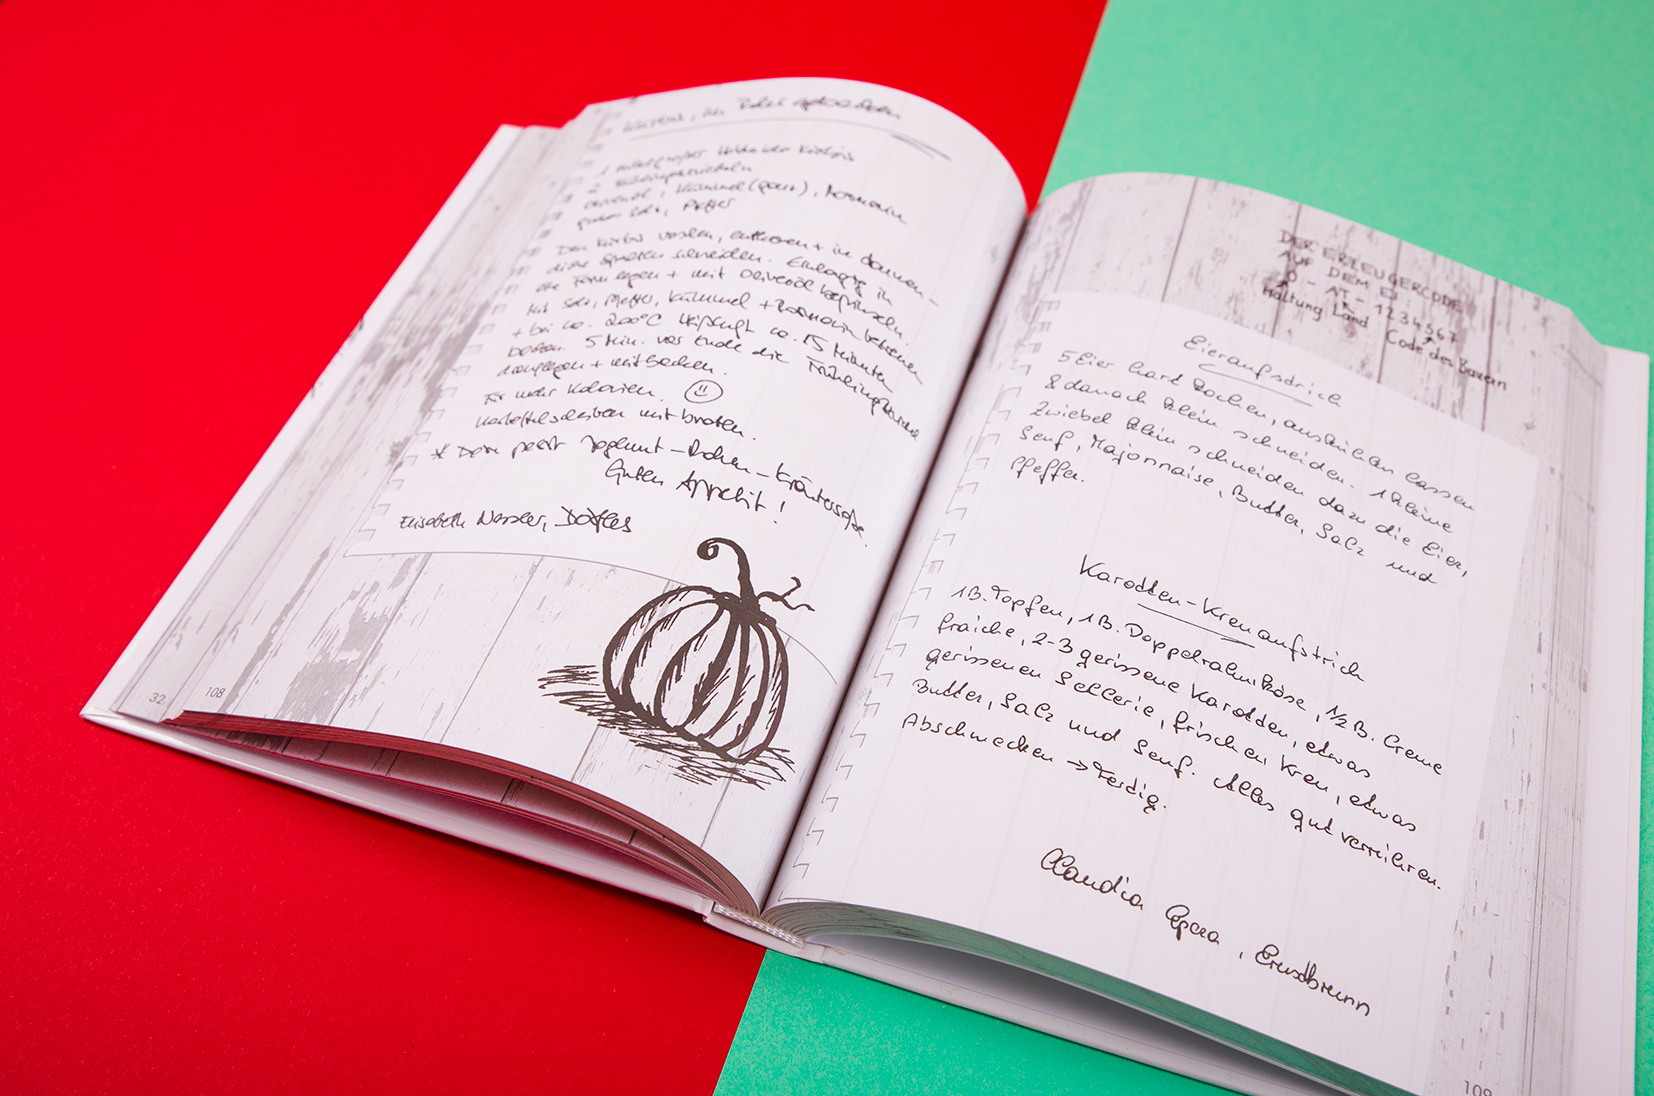 Kürbis, im Rohr gebraten
1 mittelgroßer Hokkaido Kürbis
2 Frühlingszwiebeln
Olivenöl, Kümmel (ganz), Rosmarin
Salz, Pfeffer
Den Kürbis waschen, entkernen + in daumen-
dicke Spalten schneiden. Einlagig in
die Form legen + mit Olivenöl bepinseln.
Mit Salz, Pfeffer, Kümmel + Rosmarin bestreuen
+ bei ca. 200°C Heißluft ca. 15 Minuten
braten. 5 Min. vor Ende die Frühlingszwiebel
drauflegen + mitbacken.
Für mehr Kalorien.
Kartoffelscheiben mitbraten.
* Dazu passt Joghurt-Rahm-Kräutersoße.
Guten Appetit!
Elisabeth
32 108
DER ERZEUGERCODE
AUF DEM EI
0 - AT - 1234567
Haltung Land Code des Bauern
Eieraufstrich
5 Eier hart kochen, auskühlen lassen
& danach klein schneiden. 1 kleine
Zwiebel klein schneiden dazu die Eier,
Senf, Majonnaise, Butter, Salz und
Pfeffer.
Karotten-Krenaufstrich
1B. Topfen, 1B. Doppelrahmkäse, 1/2 B. Creme
fraiche, 2-3 gerissene Karotten, etwas
gerissenen Sellerie, frischen Kren, etwas
Butter, Salz und Senf. Alles gut verrühren.
Abschmecken → Fertig.
Claudia , Ernstbrunn
109